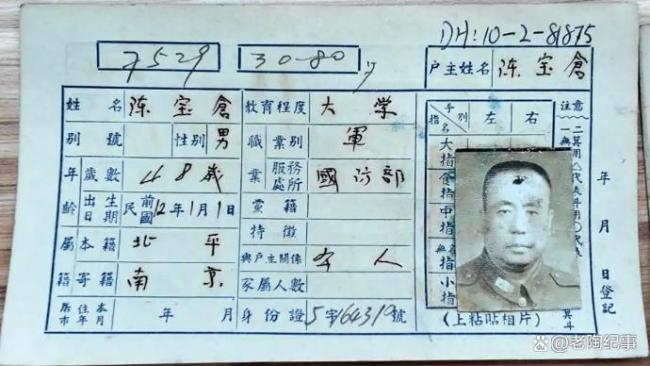 DH:10-2-81875
7529 30-80
户主姓名 陈宝倉
姓名 陈宝倉 教育程度 大学
別號 性別 男 職業別 軍
年齡 歲數 48歲 業 服務處所 國防部
出生日期 民前國12年1月1日 黨籍
特徵
屬籍 本籍 北平 與戶主關係 本人
寄籍 南京 家屬人數
居住本市年月 年 月 身份證 5字164319號
指名 手別 左 右
大指
食指
中指
無名指
小指
(上粘貼相片)
注意
年 月 日登記
@老陶纪事